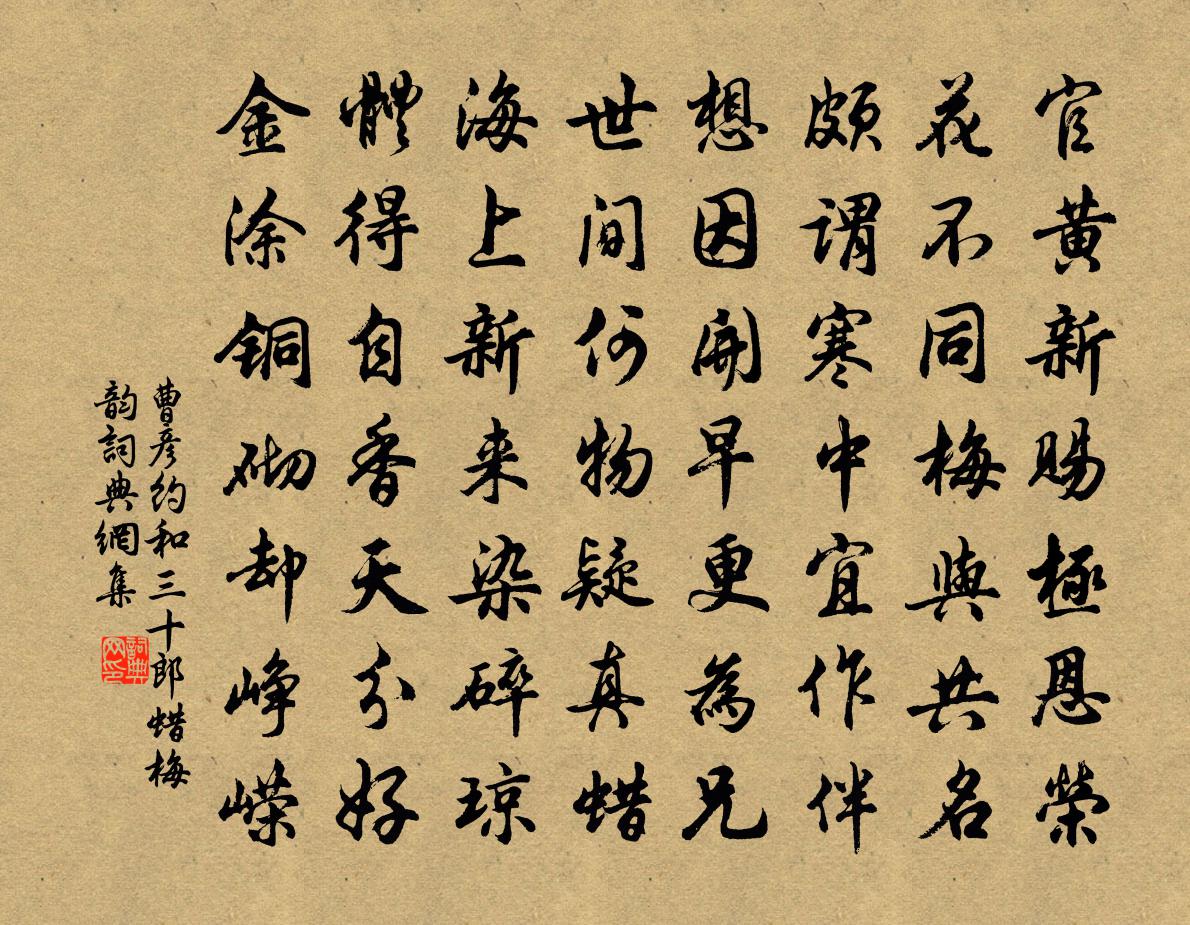 官黄新赐極恩榮
花不同梅與共名
颇謂寒中宜作伴
想因開早更為兄
世間何物疑真蜡
海上新来染碎琼
體得自香天分好
金涂铜砌却峥嵘
曹彦约和三十郎蜡梅
韵詞典網集
詞典
网印